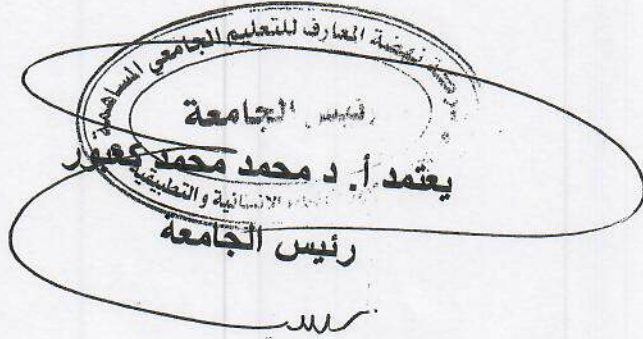 نهضة المعارف للتعليم الجامعي المساهمة
رئيس الجامعة
يعتمد أ. د محمد محمد كعبور
الانسانية والتطبيقية
رئيس الجامعة